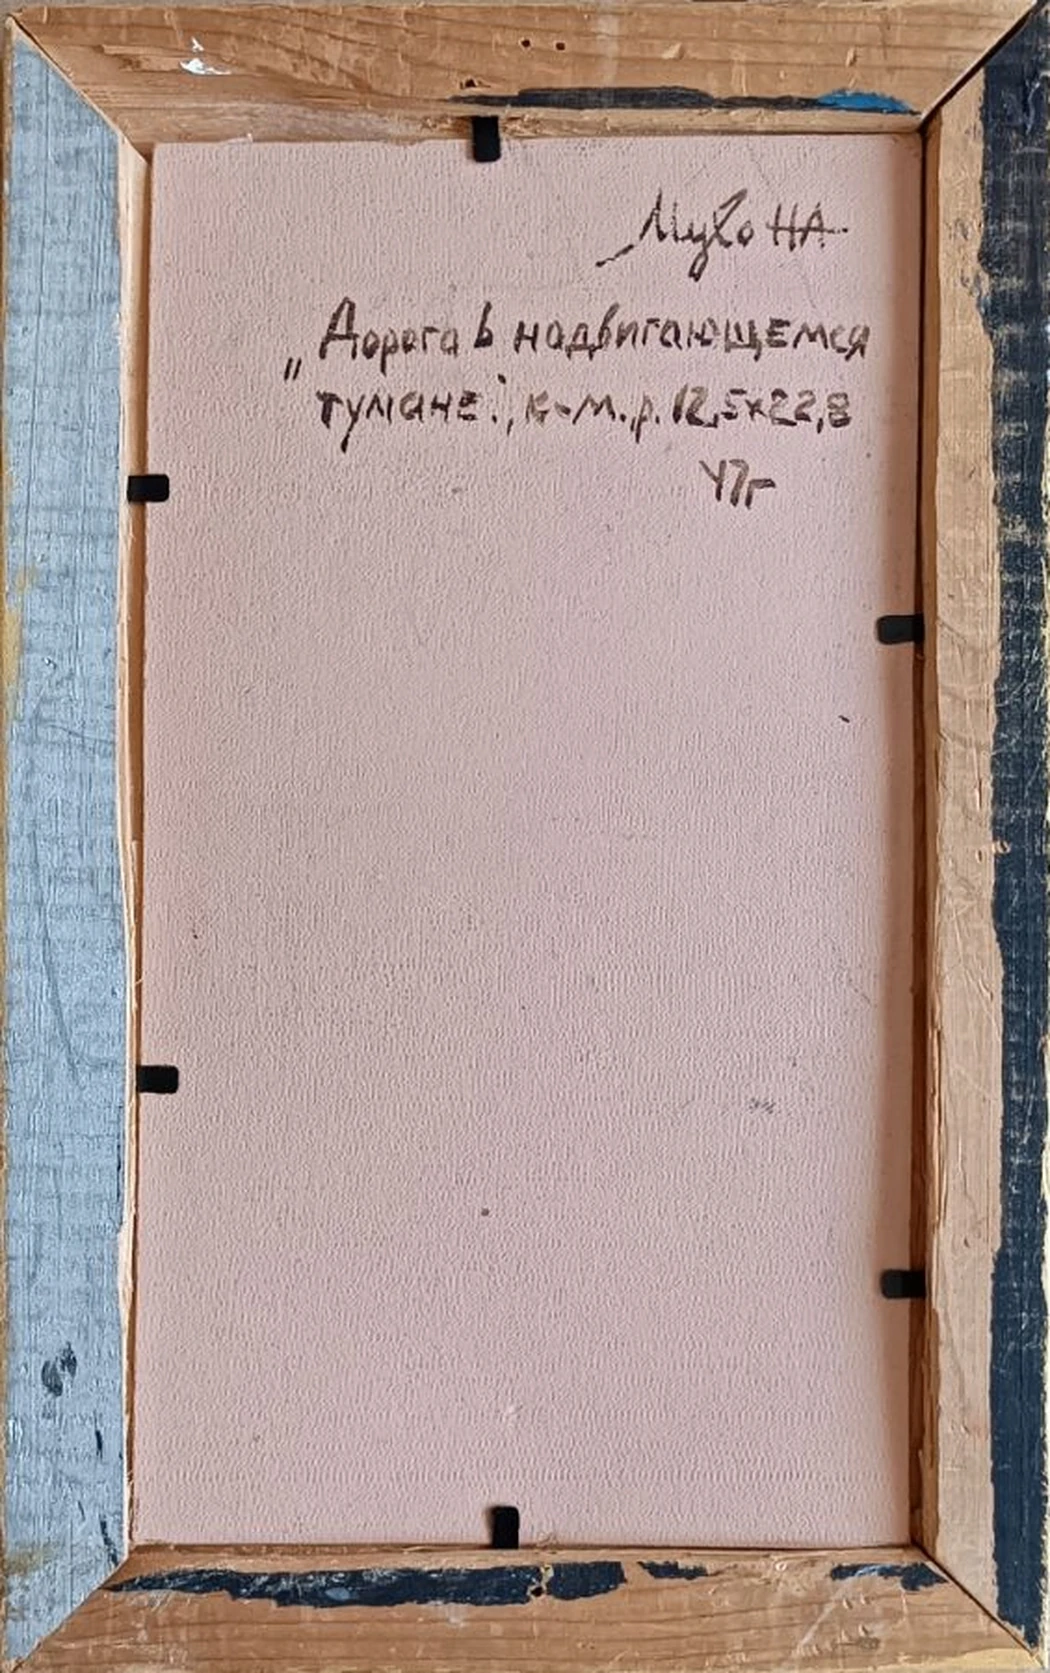 Мухо НА
„Дорога в надвигающемся
тумане", к-м., р. 12,5х22,8
47г